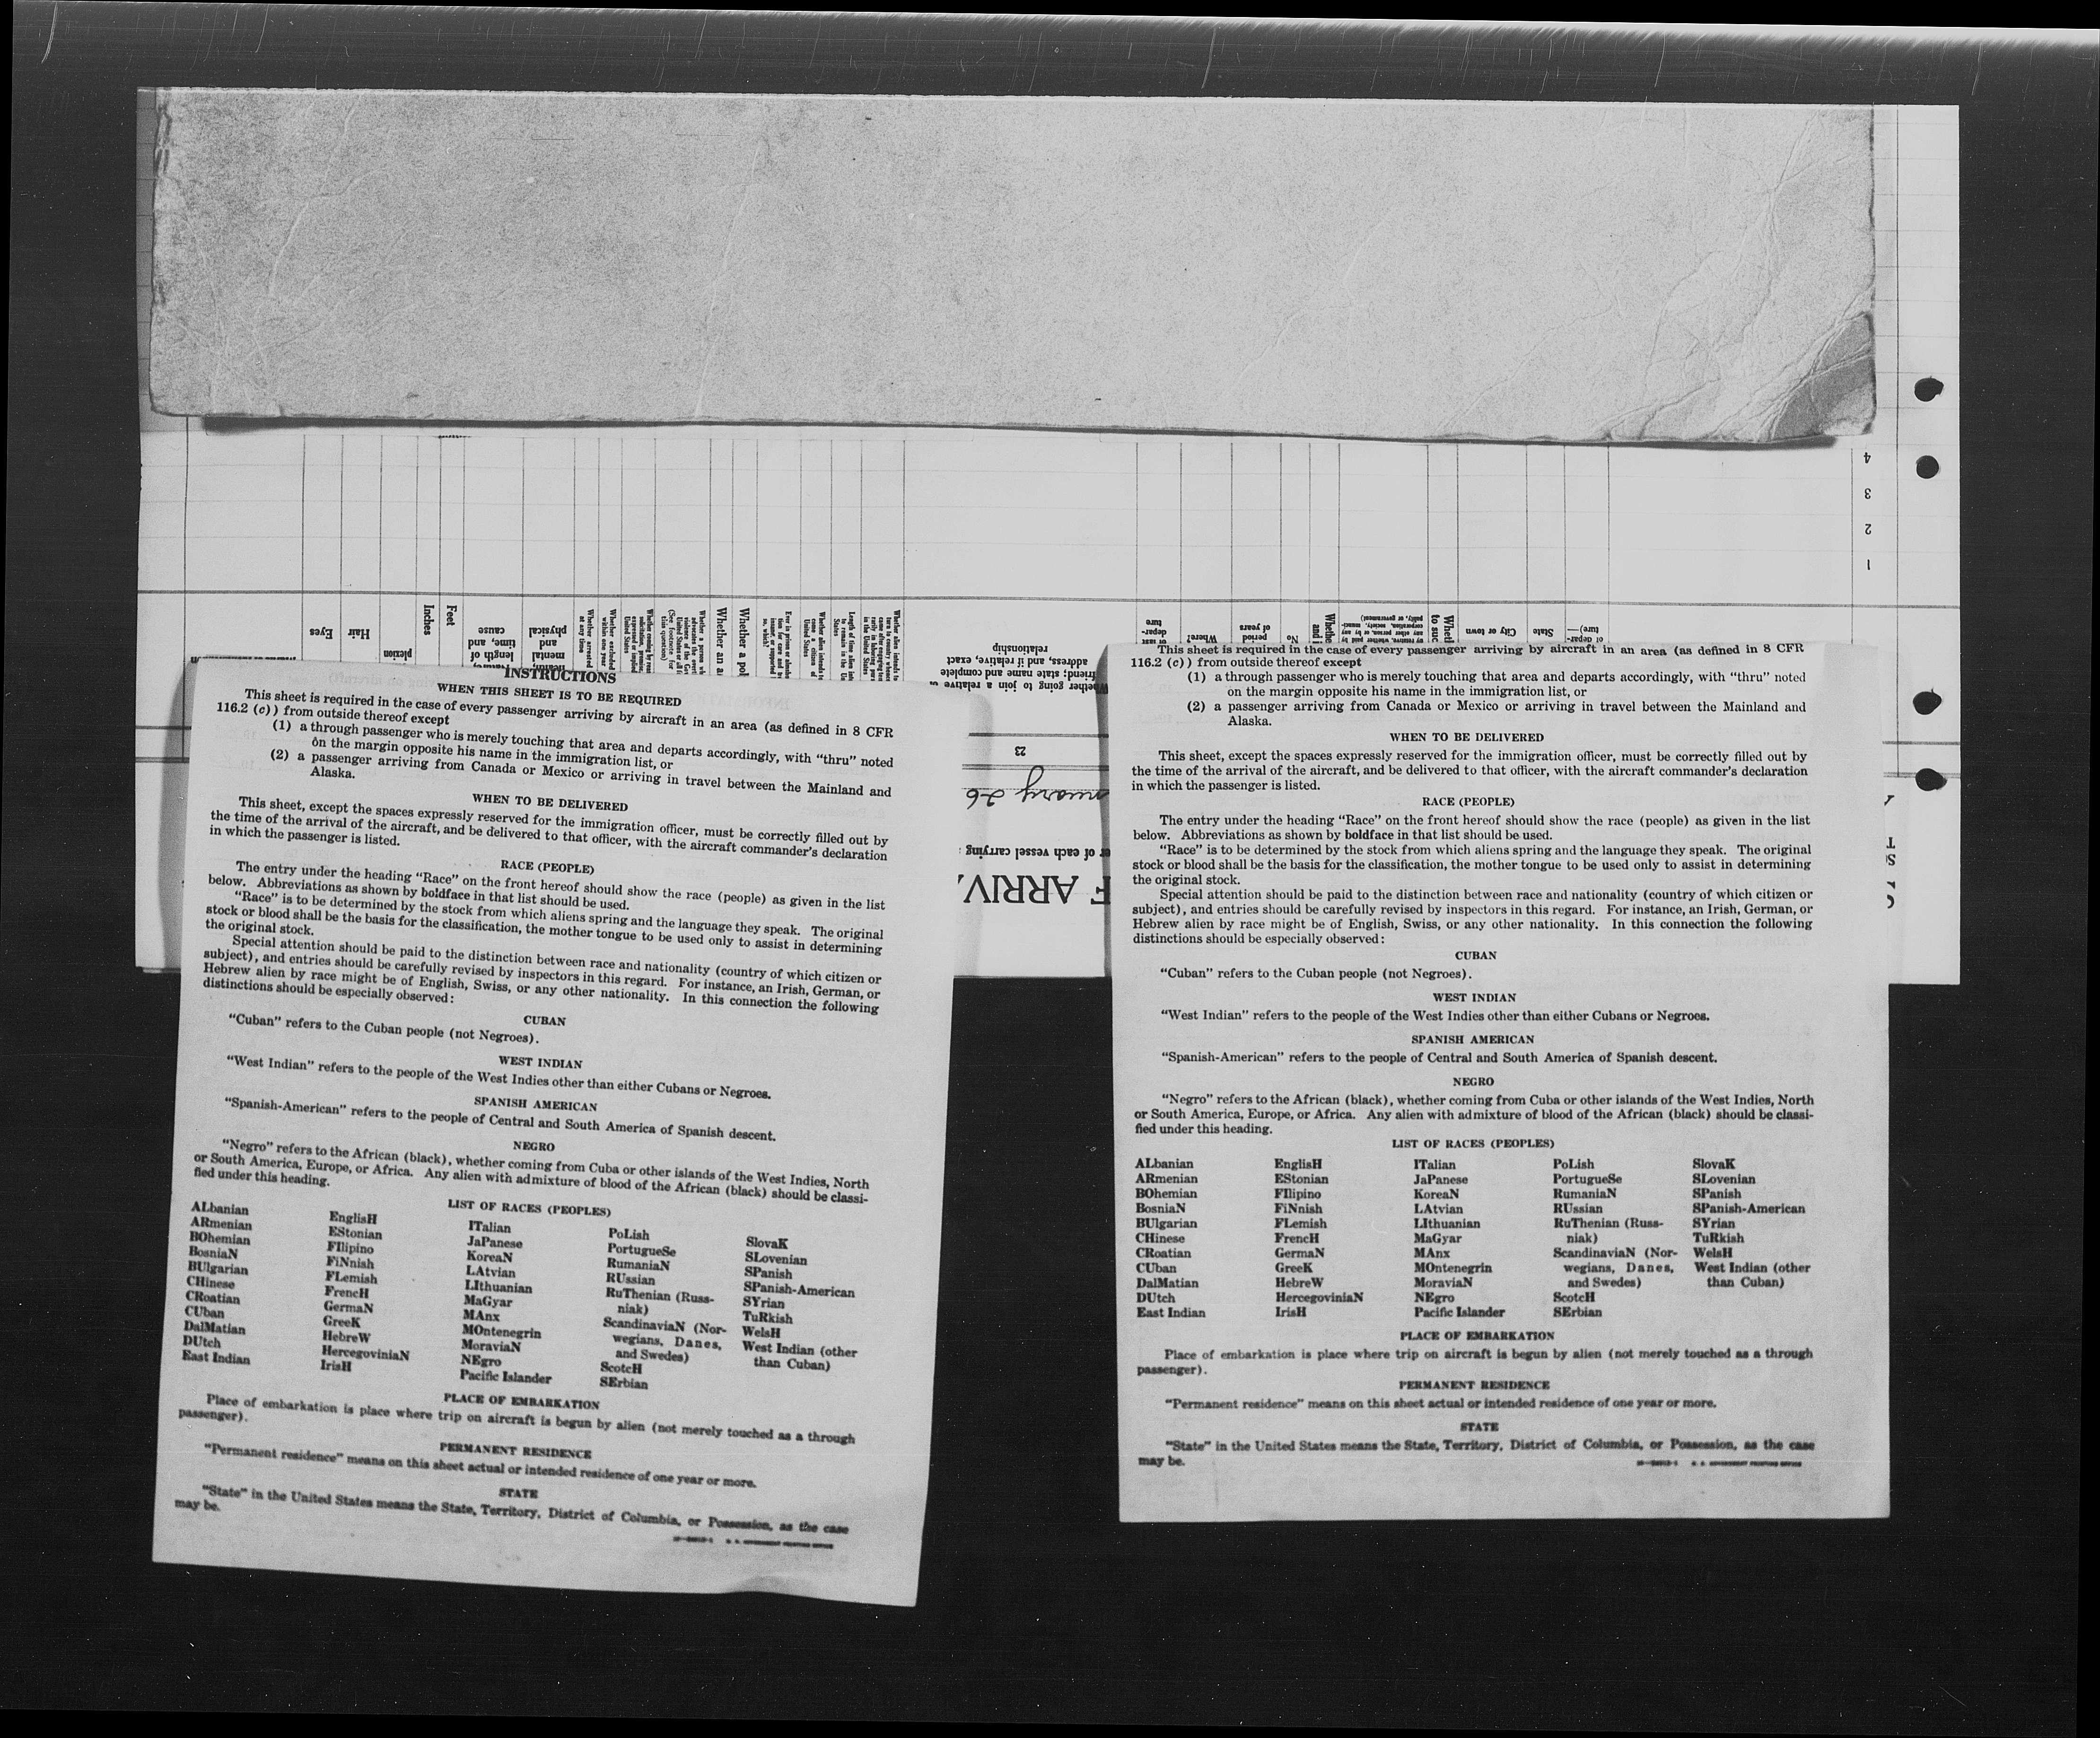 4
3
2
1
Eyes
Hair
plexion
Inches
Feet
length of
time, and
cause
mental
and
physical
Whether arrested
at any time
Whether excluded
within one year
this question)
(See footnote for
Whether an a
Whether a pol
so, which?
United States
Whether going to join a relative
friend; state name and complete
address, and if relative, exact
relationship
of last
depar-
ture
Where?
period
of years
No
City or town
State
of depar-
ture)—
23
nuary 26
er of each vessel carrying
F ARRIV
INSTRUCTIONS
WHEN THIS SHEET IS TO BE REQUIRED
This sheet is required in the case of every passenger arriving by aircraft in an area (as defined in 8 CFR
116.2 (c)) from outside thereof except
(1) a through passenger who is merely touching that area and departs accordingly, with “thru” noted
on the margin opposite his name in the immigration list, or
(2) a passenger arriving from Canada or Mexico or arriving in travel between the Mainland and
Alaska.
WHEN TO BE DELIVERED
This sheet, except the spaces expressly reserved for the immigration officer, must be correctly filled out by
the time of the arrival of the aircraft, and be delivered to that officer, with the aircraft commander’s declaration
in which the passenger is listed.
RACE (PEOPLE)
The entry under the heading “Race” on the front hereof should show the race (people) as given in the list
below. Abbreviations as shown by boldface in that list should be used.
“Race” is to be determined by the stock from which aliens spring and the language they speak. The original
stock or blood shall be the basis for the classification, the mother tongue to be used only to assist in determining
the original stock.
Special attention should be paid to the distinction between race and nationality (country of which citizen or
subject), and entries should be carefully revised by inspectors in this regard. For instance, an Irish, German, or
Hebrew alien by race might be of English, Swiss, or any other nationality. In this connection the following
distinctions should be especially observed:
CUBAN
“Cuban” refers to the Cuban people (not Negroes).
WEST INDIAN
“West Indian” refers to the people of the West Indies other than either Cubans or Negroes.
SPANISH AMERICAN
“Spanish-American” refers to the people of Central and South America of Spanish descent.
NEGRO
“Negro” refers to the African (black), whether coming from Cuba or other islands of the West Indies, North
or South America, Europe, or Africa. Any alien with admixture of blood of the African (black) should be classi-
fied under this heading.
LIST OF RACES (PEOPLES)
ALbanian
ARmenian
BOhemian
BosniaN
BUlgarian
CHinese
CRoatian
CUban
DalMatian
DUtch
East Indian
EnglisH
EStonian
FIlipino
FiNnish
FLemish
FrencH
GermaN
GreeK
HebreW
HercegoviniaN
IrisH
ITalian
JaPanese
KoreaN
LAtvian
LIthuanian
MaGyar
MAnx
MOntenegrin
MoraviaN
NEgro
Pacific Islander
PoLish
PortugueSe
RumaniaN
RUssian
RuThenian (Russ-
niak)
ScandinaviaN (Nor-
wegians, Danes,
and Swedes)
ScotcH
SErbian
SlovaK
SLovenian
SPanish
SPanish-American
SYrian
TuRkish
WelsH
West Indian (other
than Cuban)
PLACE OF EMBARKATION
Place of embarkation is place where trip on aircraft is begun by alien (not merely touched as a through
passenger).
PERMANENT RESIDENCE
“Permanent residence” means on this sheet actual or intended residence of one year or more.
STATE
“State” in the United States means the State, Territory, District of Columbia, or Possession, as the case
may be.
U. S. GOVERNMENT PRINTING OFFICE
This sheet is required in the case of every passenger arriving by aircraft in an area (as defined in 8 CFR
116.2 (c)) from outside thereof except
(1) a through passenger who is merely touching that area and departs accordingly, with “thru” noted
on the margin opposite his name in the immigration list, or
(2) a passenger arriving from Canada or Mexico or arriving in travel between the Mainland and
Alaska.
WHEN TO BE DELIVERED
This sheet, except the spaces expressly reserved for the immigration officer, must be correctly filled out by
the time of the arrival of the aircraft, and be delivered to that officer, with the aircraft commander’s declaration
in which the passenger is listed.
RACE (PEOPLE)
The entry under the heading “Race” on the front hereof should show the race (people) as given in the list
below. Abbreviations as shown by boldface in that list should be used.
“Race” is to be determined by the stock from which aliens spring and the language they speak. The original
stock or blood shall be the basis for the classification, the mother tongue to be used only to assist in determining
the original stock.
Special attention should be paid to the distinction between race and nationality (country of which citizen or
subject), and entries should be carefully revised by inspectors in this regard. For instance, an Irish, German, or
Hebrew alien by race might be of English, Swiss, or any other nationality. In this connection the following
distinctions should be especially observed:
CUBAN
“Cuban” refers to the Cuban people (not Negroes).
WEST INDIAN
“West Indian” refers to the people of the West Indies other than either Cubans or Negroes.
SPANISH AMERICAN
“Spanish-American” refers to the people of Central and South America of Spanish descent.
NEGRO
“Negro” refers to the African (black), whether coming from Cuba or other islands of the West Indies, North
or South America, Europe, or Africa. Any alien with admixture of blood of the African (black) should be classi-
fied under this heading.
LIST OF RACES (PEOPLES)
ALbanian
ARmenian
BOhemian
BosniaN
BUlgarian
CHinese
CRoatian
CUban
DalMatian
DUtch
East Indian
EnglisH
EStonian
FIlipino
FiNnish
FLemish
FrencH
GermaN
GreeK
HebreW
HercegoviniaN
IrisH
ITalian
JaPanese
KoreaN
LAtvian
LIthuanian
MaGyar
MAnx
MOntenegrin
MoraviaN
NEgro
Pacific Islander
PoLish
PortugueSe
RumaniaN
RUssian
RuThenian (Russ-
niak)
ScandinaviaN (Nor-
wegians, Danes,
and Swedes)
ScotcH
SErbian
SlovaK
SLovenian
SPanish
SPanish-American
SYrian
TuRkish
WelsH
West Indian (other
than Cuban)
PLACE OF EMBARKATION
Place of embarkation is place where trip on aircraft is begun by alien (not merely touched as a through
passenger).
PERMANENT RESIDENCE
“Permanent residence” means on this sheet actual or intended residence of one year or more.
STATE
“State” in the United States means the State, Territory, District of Columbia, or Possession, as the case
may be.
U. S. GOVERNMENT PRINTING OFFICE